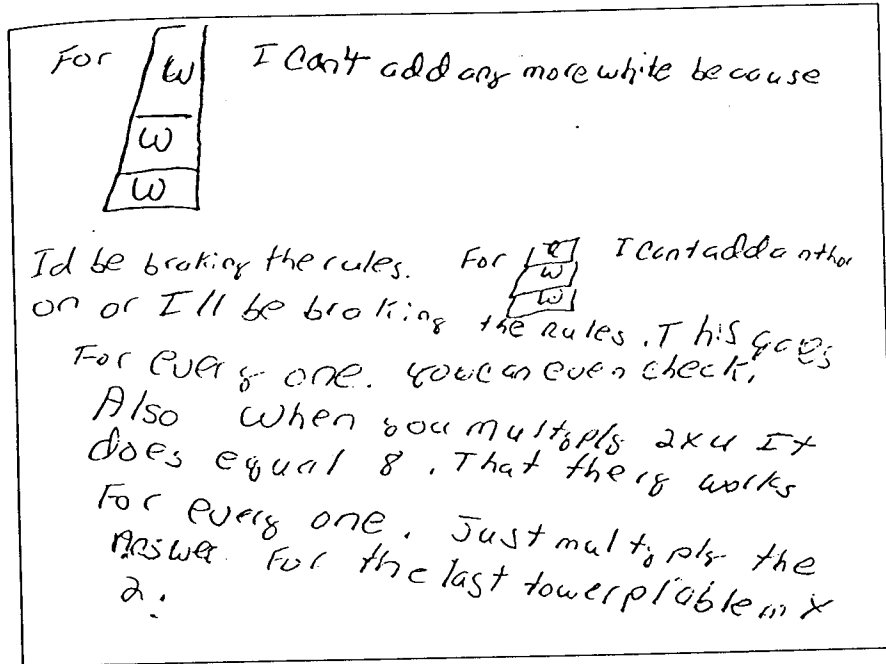 For W I Can't add any more white because
W
W
Id be braking the rules. For R W W I Cant add anthor
on or I'll be braking the rules. This goes
For every one. you can even check.
Also when you multyply 2x4 It
does equal 8. That therg works
For every one. Just multyply the
Answer For the last tower plablem x
2.